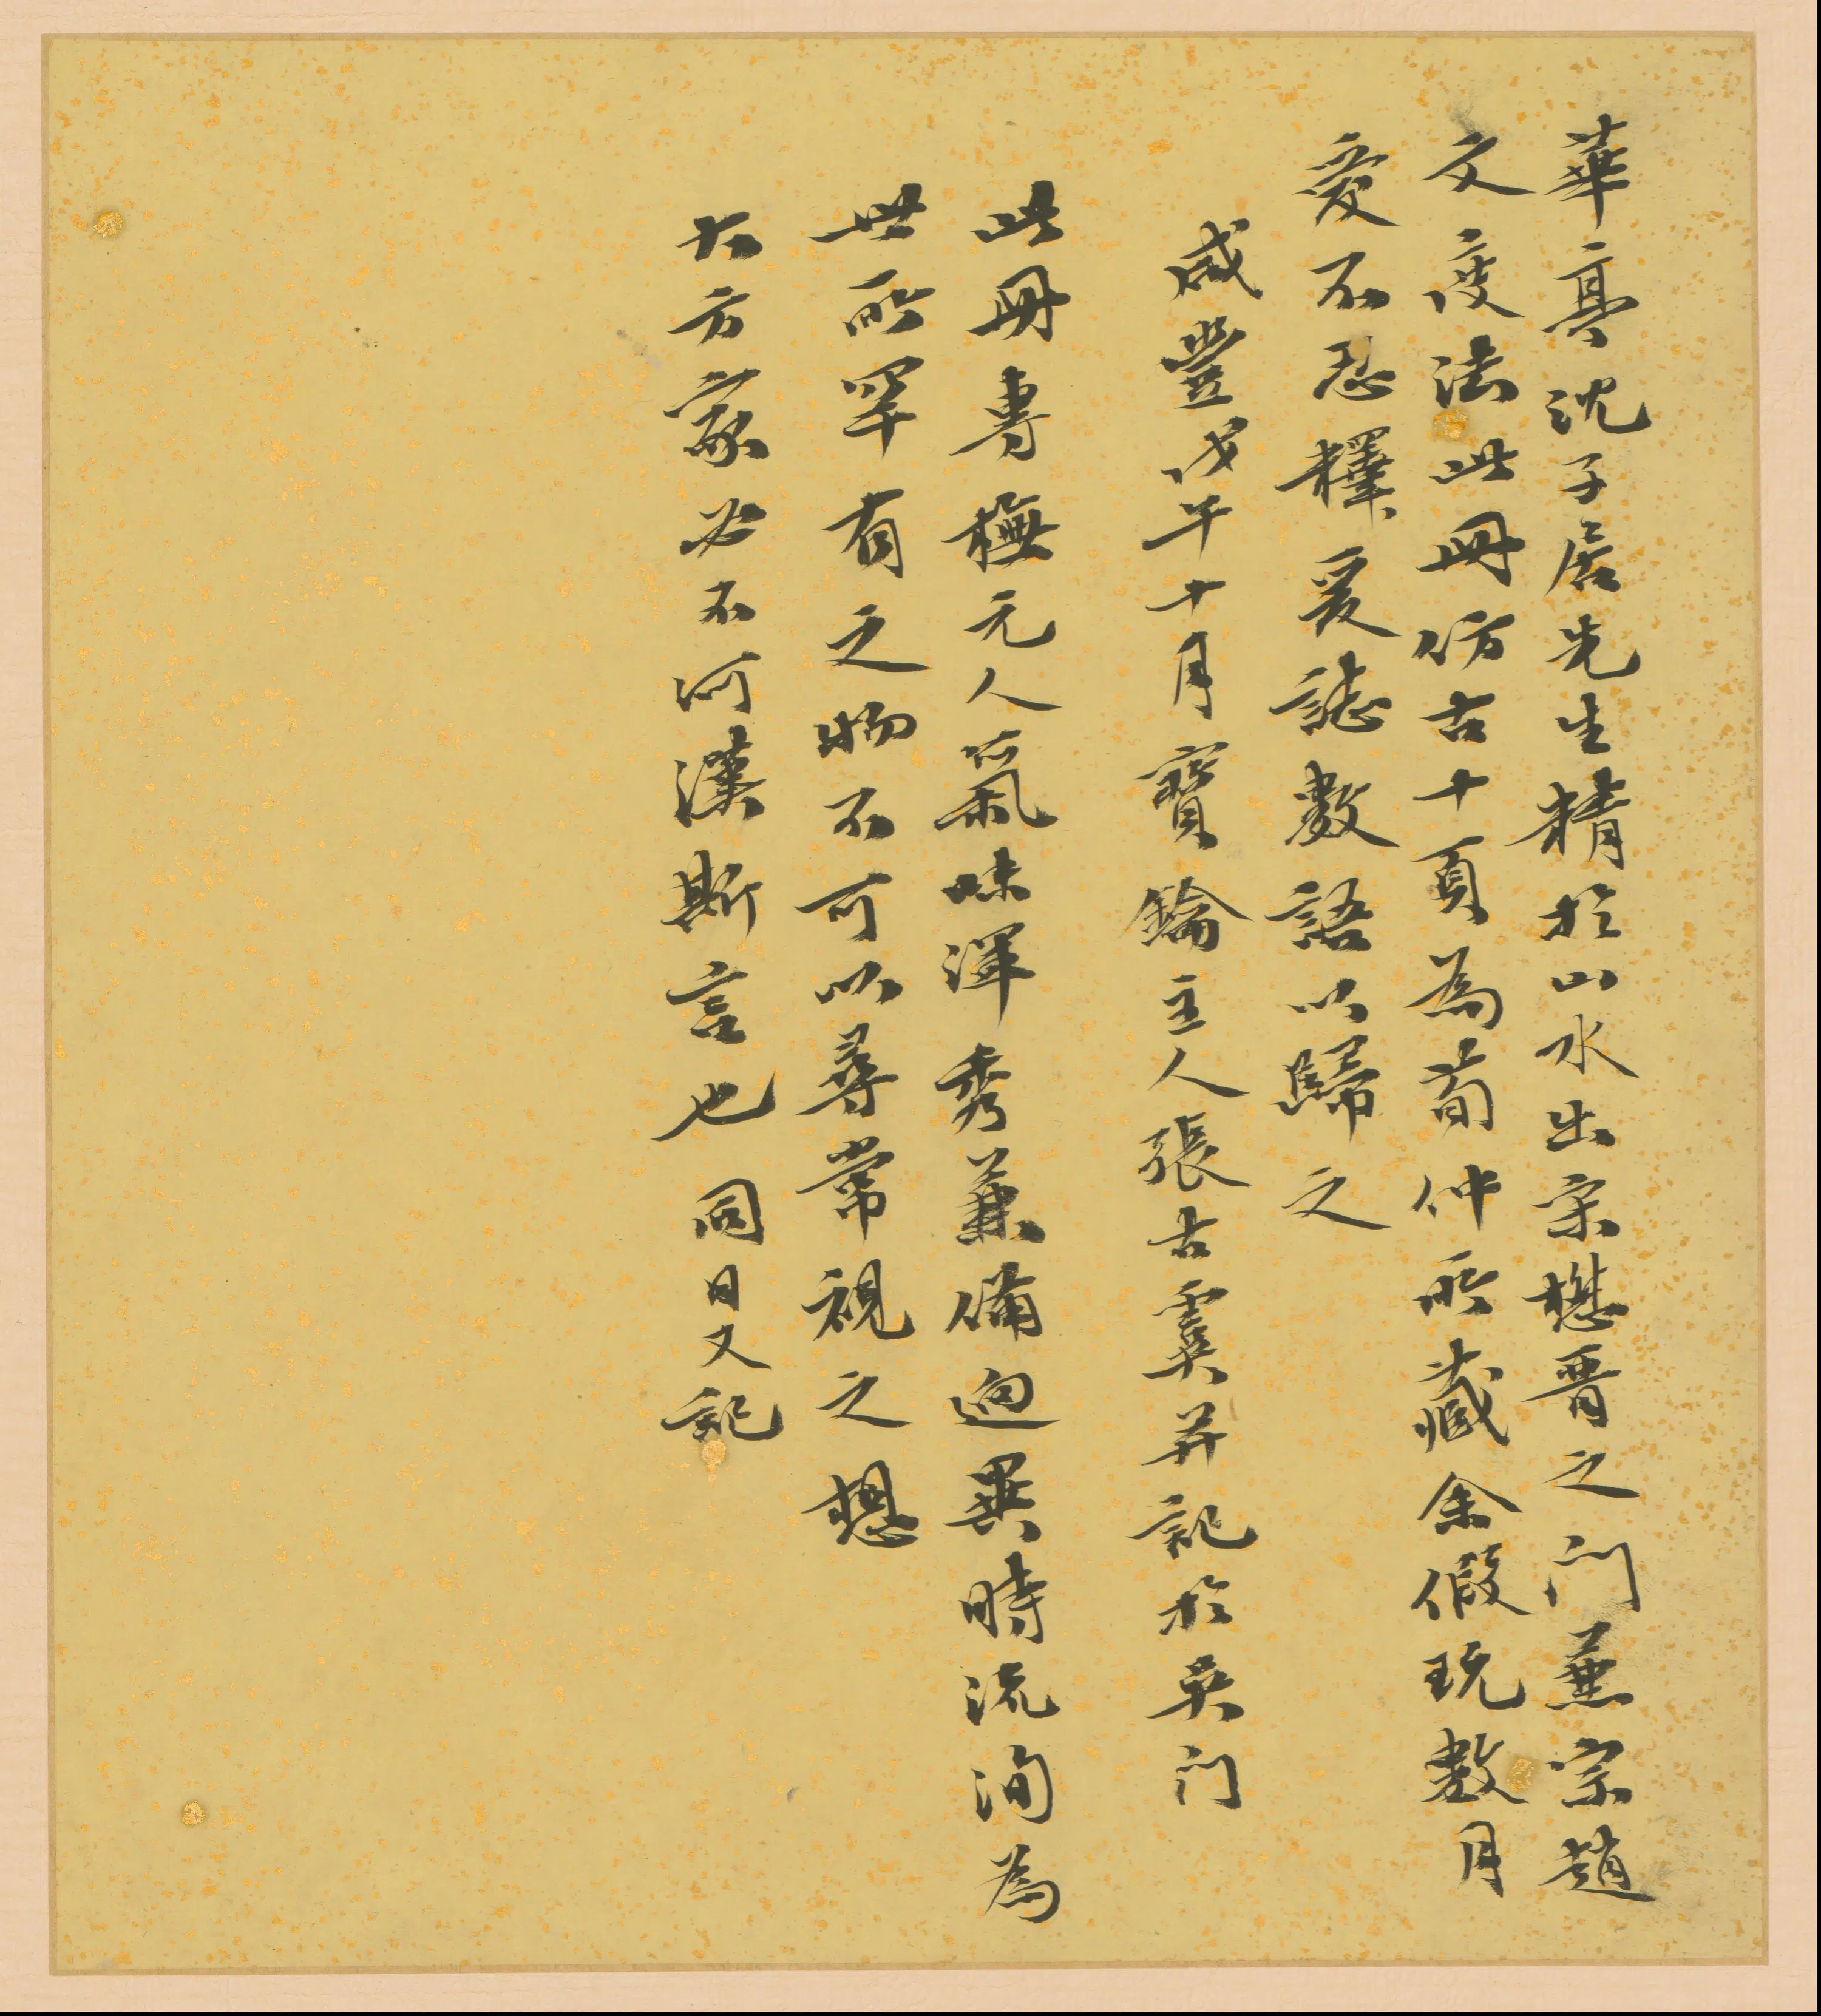 華亭沈子居先生精於山水出宋懋晋之門兼宗趙
文度法此冊仿古十頁為荀仲所藏余假玩數月
愛不忍釋爰誌數語以歸之
咸豐戊午十月寶鑰主人張古虞并記於吳門
此冊專橅元人氣味渾秀兼備迥異時流洵為
世所罕有之物不可以尋常視之想
大方家必不河漢斯言也 同日又記